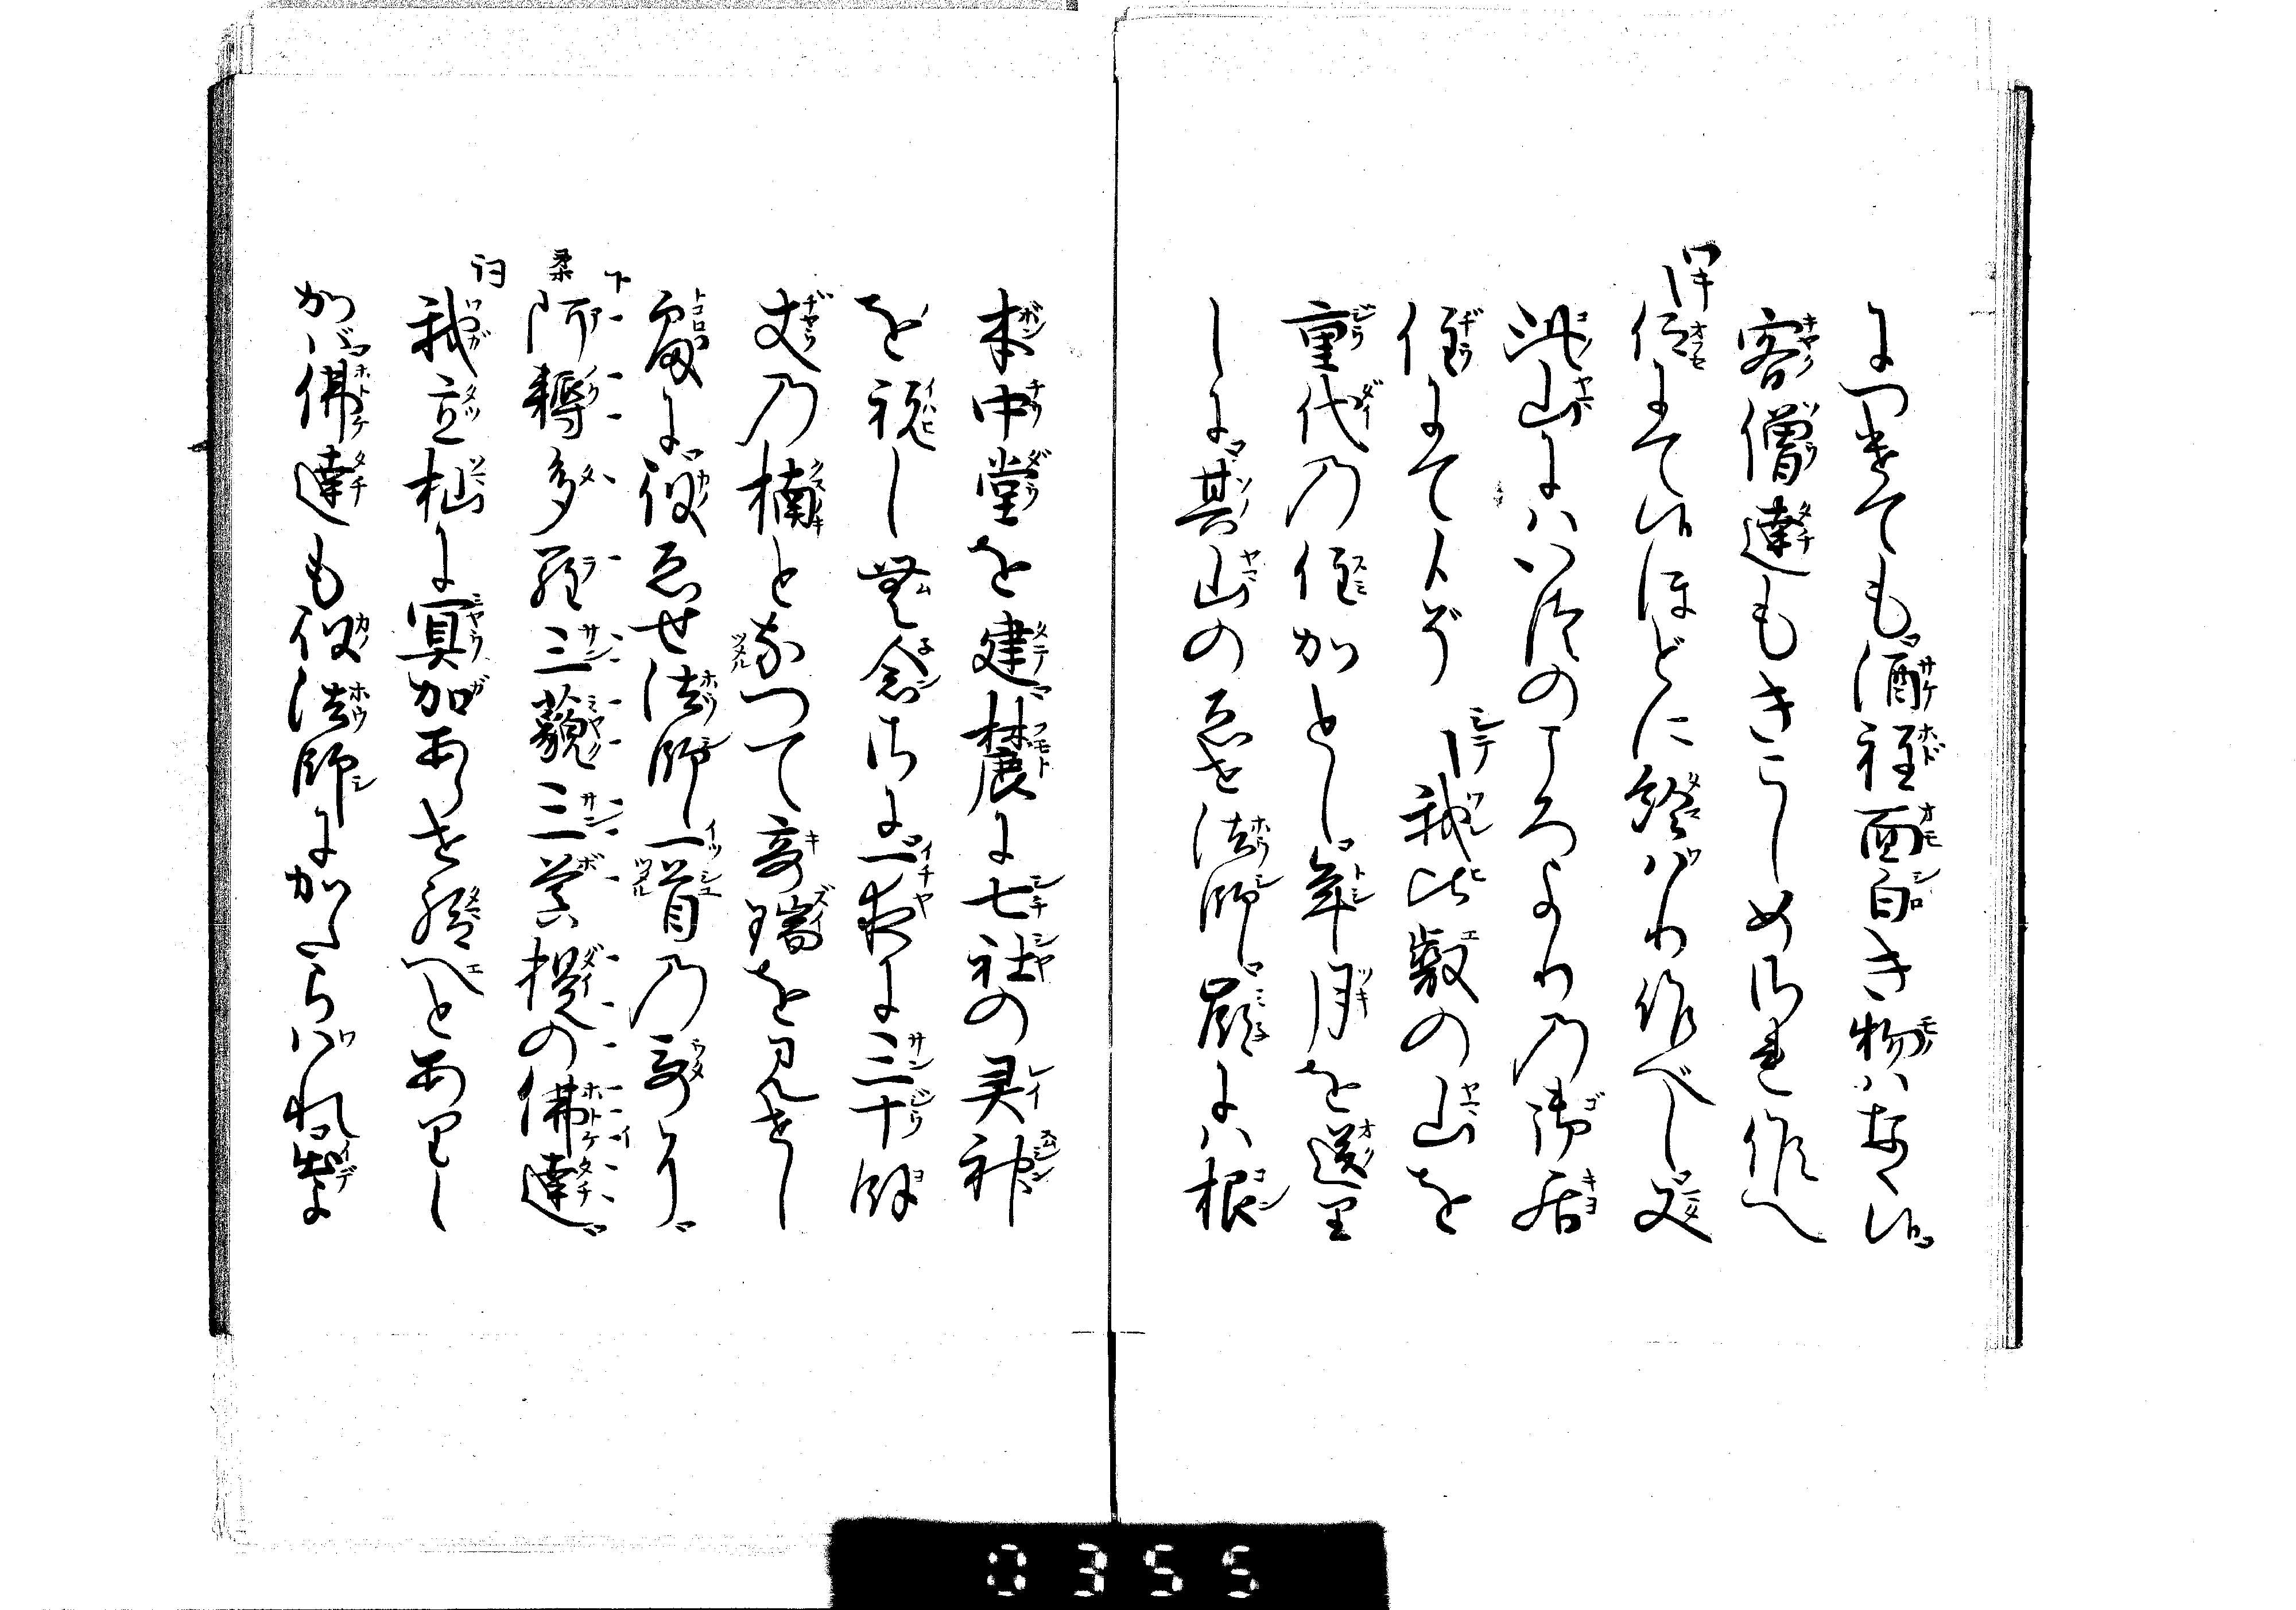 につきても酒程面白き物ハなく候
客僧達もきこしめされ候へ
仰にて候ほどに給ハり候べし又
此山にハいつのころよりの御居
住にて候ぞ　我比叡の山を
重代の住かとし年月を送り
しに其山のゑせ法師嶺にハ根
本中堂を建麓に七社の灵神
を祝し無念さに一夜に三十余
丈の楠となつて奇瑞を見せし
處に彼ゑせ法師一首の哥に
阿耨多羅三藐三菩提の佛達
我立杣に冥加あらせ給へとありし
かバ佛達も彼法師にかたらハれ出よ
0355